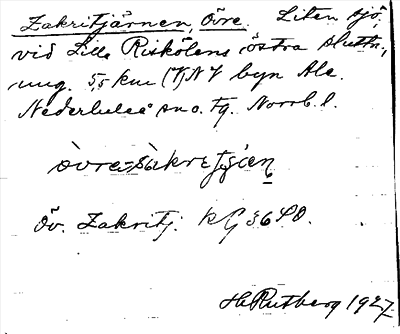 Zakritjärnen, Övre. Liten sjö
vid Lilla Riskölens östra slutt-,
ning. 5,5 km NV byn Ale.
Nederluleå sn o. tg. Norrb. l.
Öv. Zakritj. KG 36 SO.
H Rutberg 1927